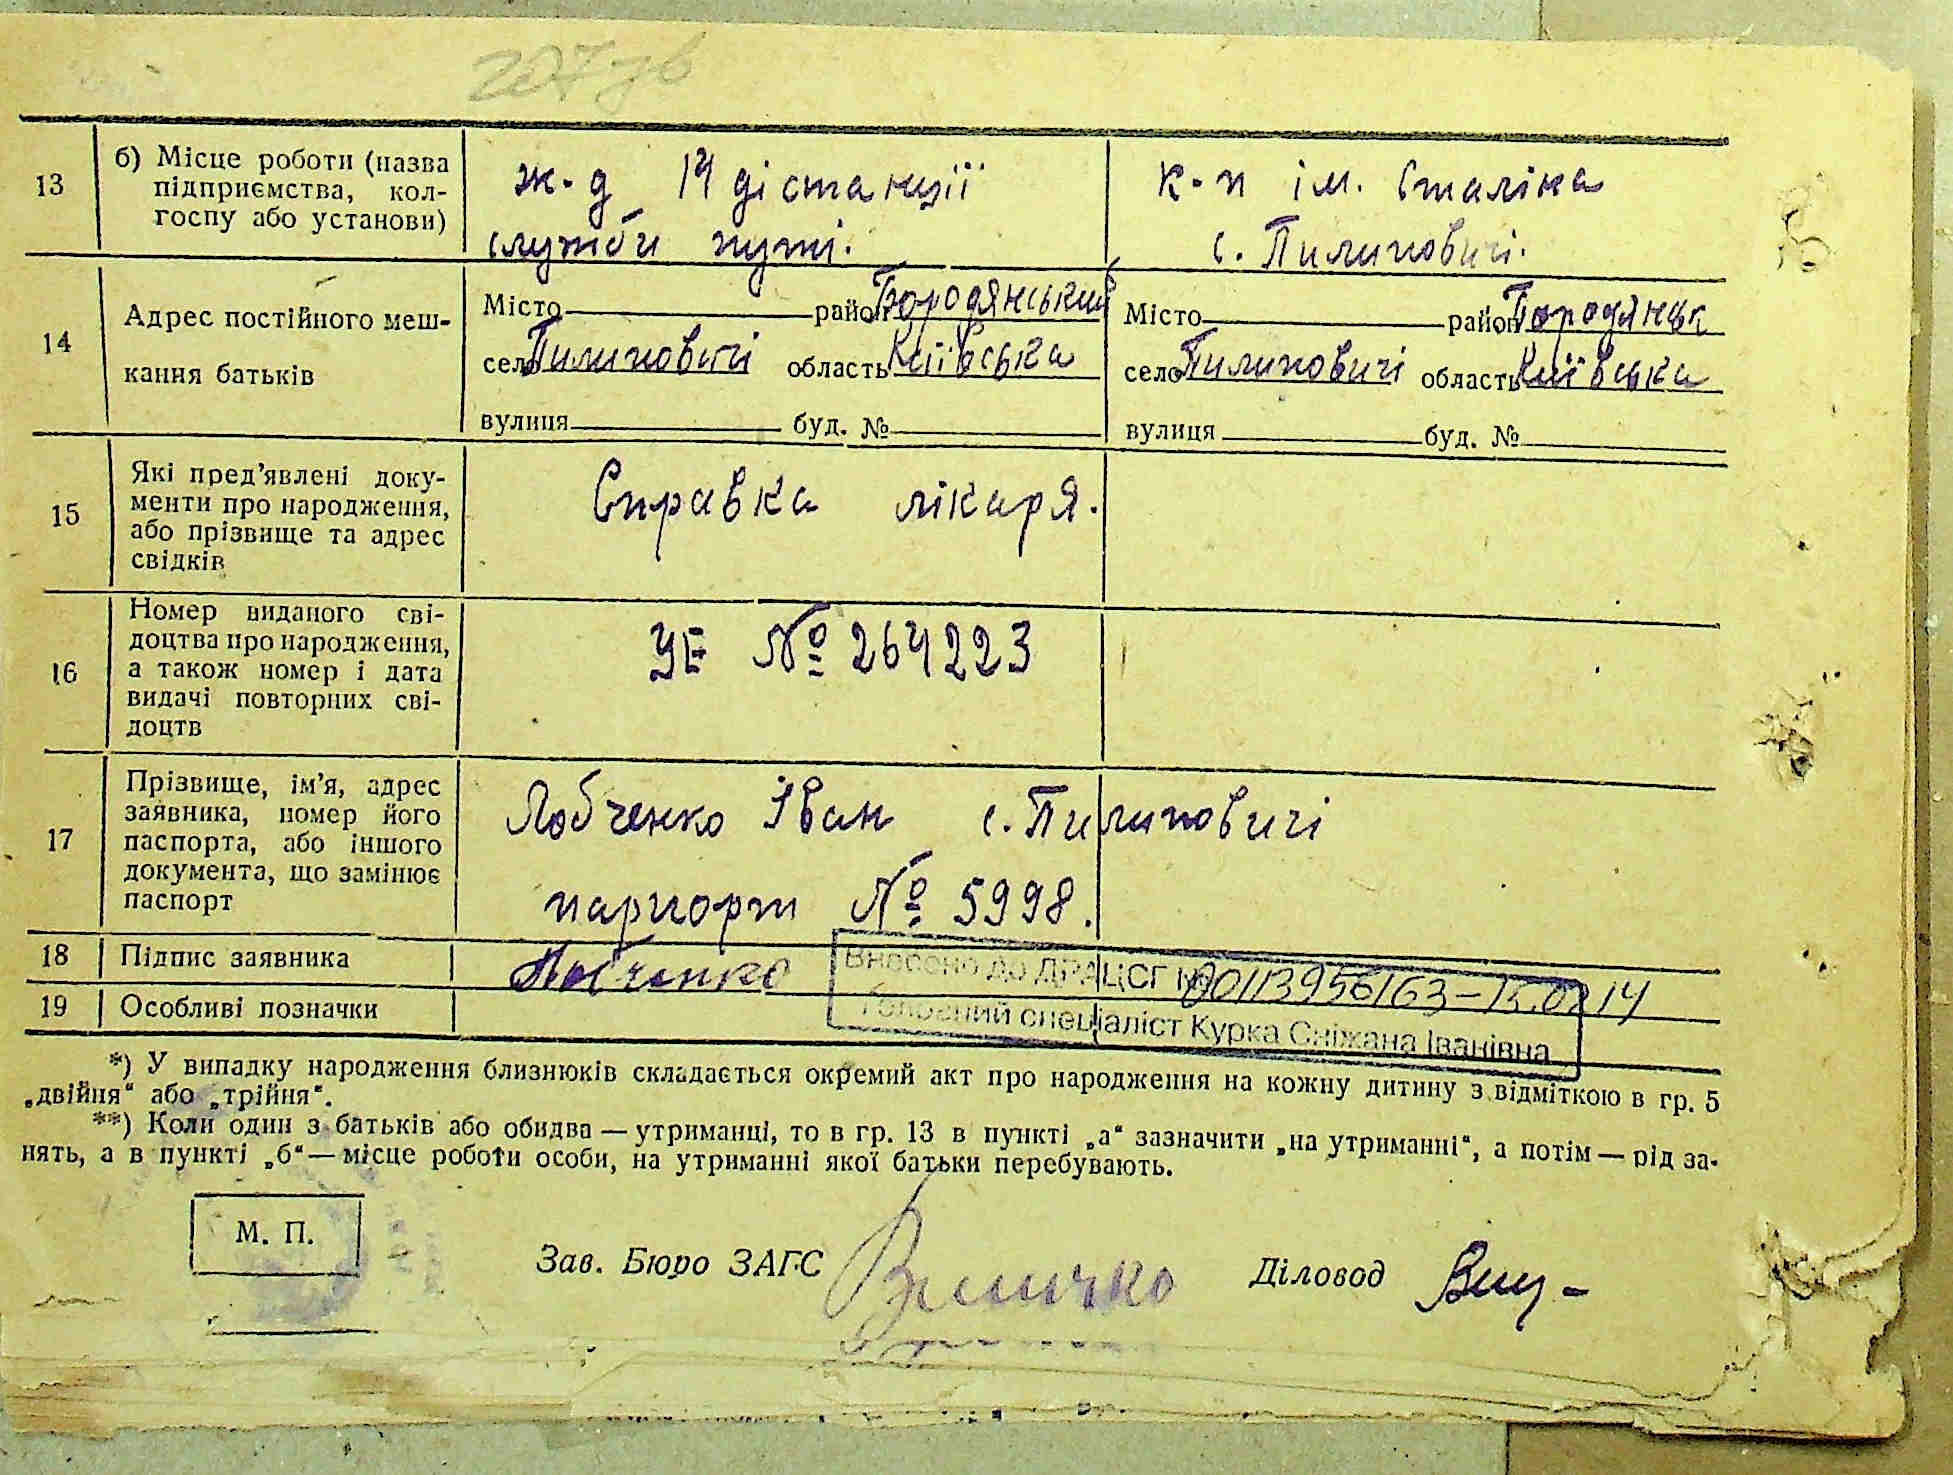 207 зв
13
б) Місце роботи (назва
підприємства, кол-
госпу або установи)
ж-д 14 дістанції
служби путі.
к-п ім. Сталіна
с. Пилиповичі.
14
Адрес постійного меш-
кання батьків
Місто район Бородянський
село Пилиповичі область Київська
вулиця буд. №
Місто район Бородянськ
село Пилиповичі область Київська
вулиця буд. №
15
Які пред'явлені доку-
менти про народження,
або прізвище та адрес
свідків
Справка лікаря.
16
Номер виданого сві-
доцтва про народження,
а також номер і дата
видачі повторних сві-
доцтв
УЕ № 264223
17
Прізвище, ім'я, адрес
заявника, номер його
паспорта, або іншого
документа, що замінює
паспорт
Лобченко Іван с. Пилиповичі
паспорт № 5998.
18 Підпис заявника
Лобченко
Внесено до ДРАЦСГ № 00113956163
19 Особливі позначки
Головний спеціаліст Курка Сніжана Іванівна
*) У випадку народження близнюків складається окремий акт про народження на кожну дитину з відміткою в гр. 5
„двійня“ або „трійня“.
**) Коли один з батьків або обидва — утриманці, то в гр. 13 в пункті „а“ зазначити „на утриманні“, а потім — рід за-
нять, а в пункті „б“ — місце роботи особи, на утриманні якої батьки перебувають.
М. П.
Зав. Бюро ЗАГС
Діловод